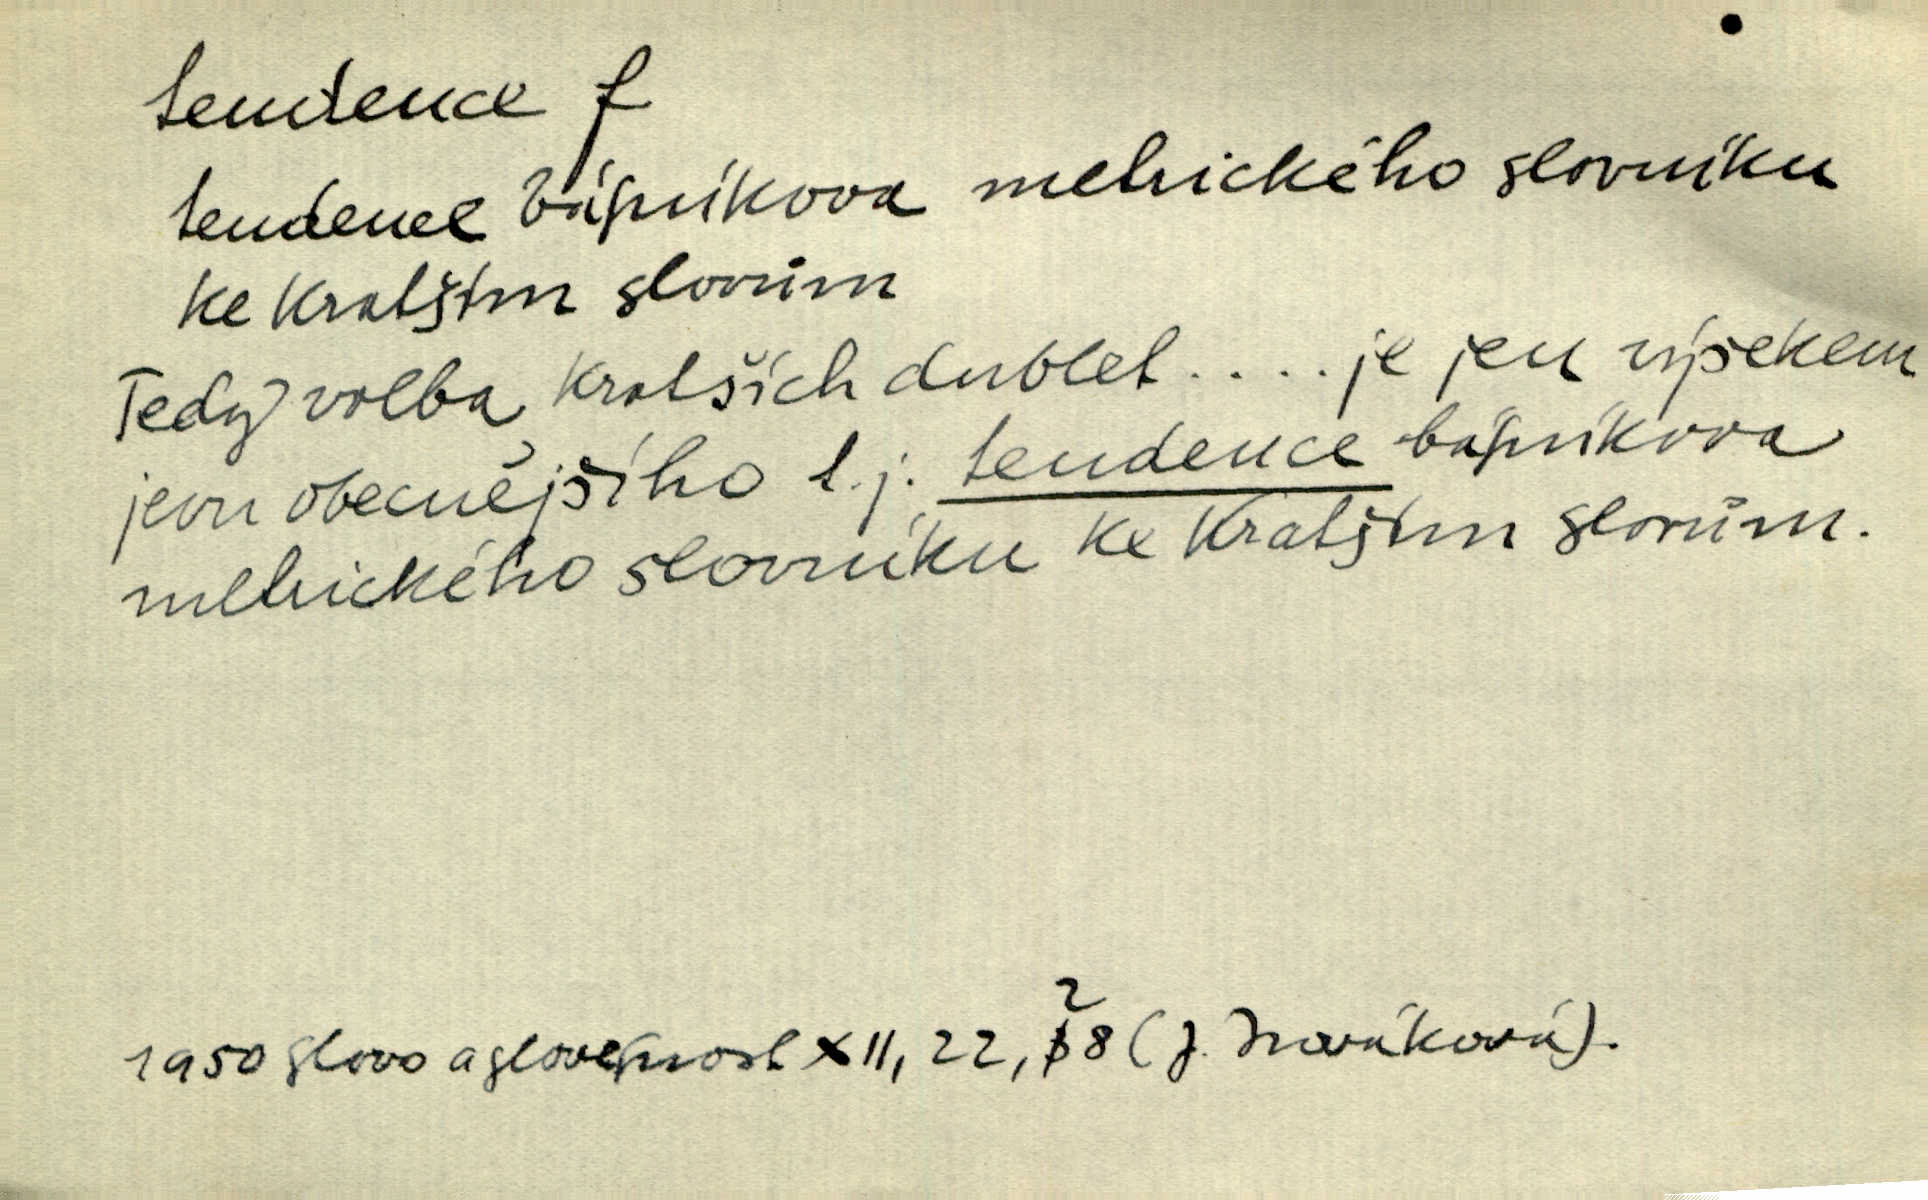 tendence f
tendence básníkova metrického slovníku
ke kratším slovům
Tedy volba kratších dublet ..... je jen výsekem
jevu obecnějšího t.j. tendence básníkova
metrického slovníku ke kratším slovům.
1950 Slovo a slovesnost XII, 22, 28 (J. Nováková).